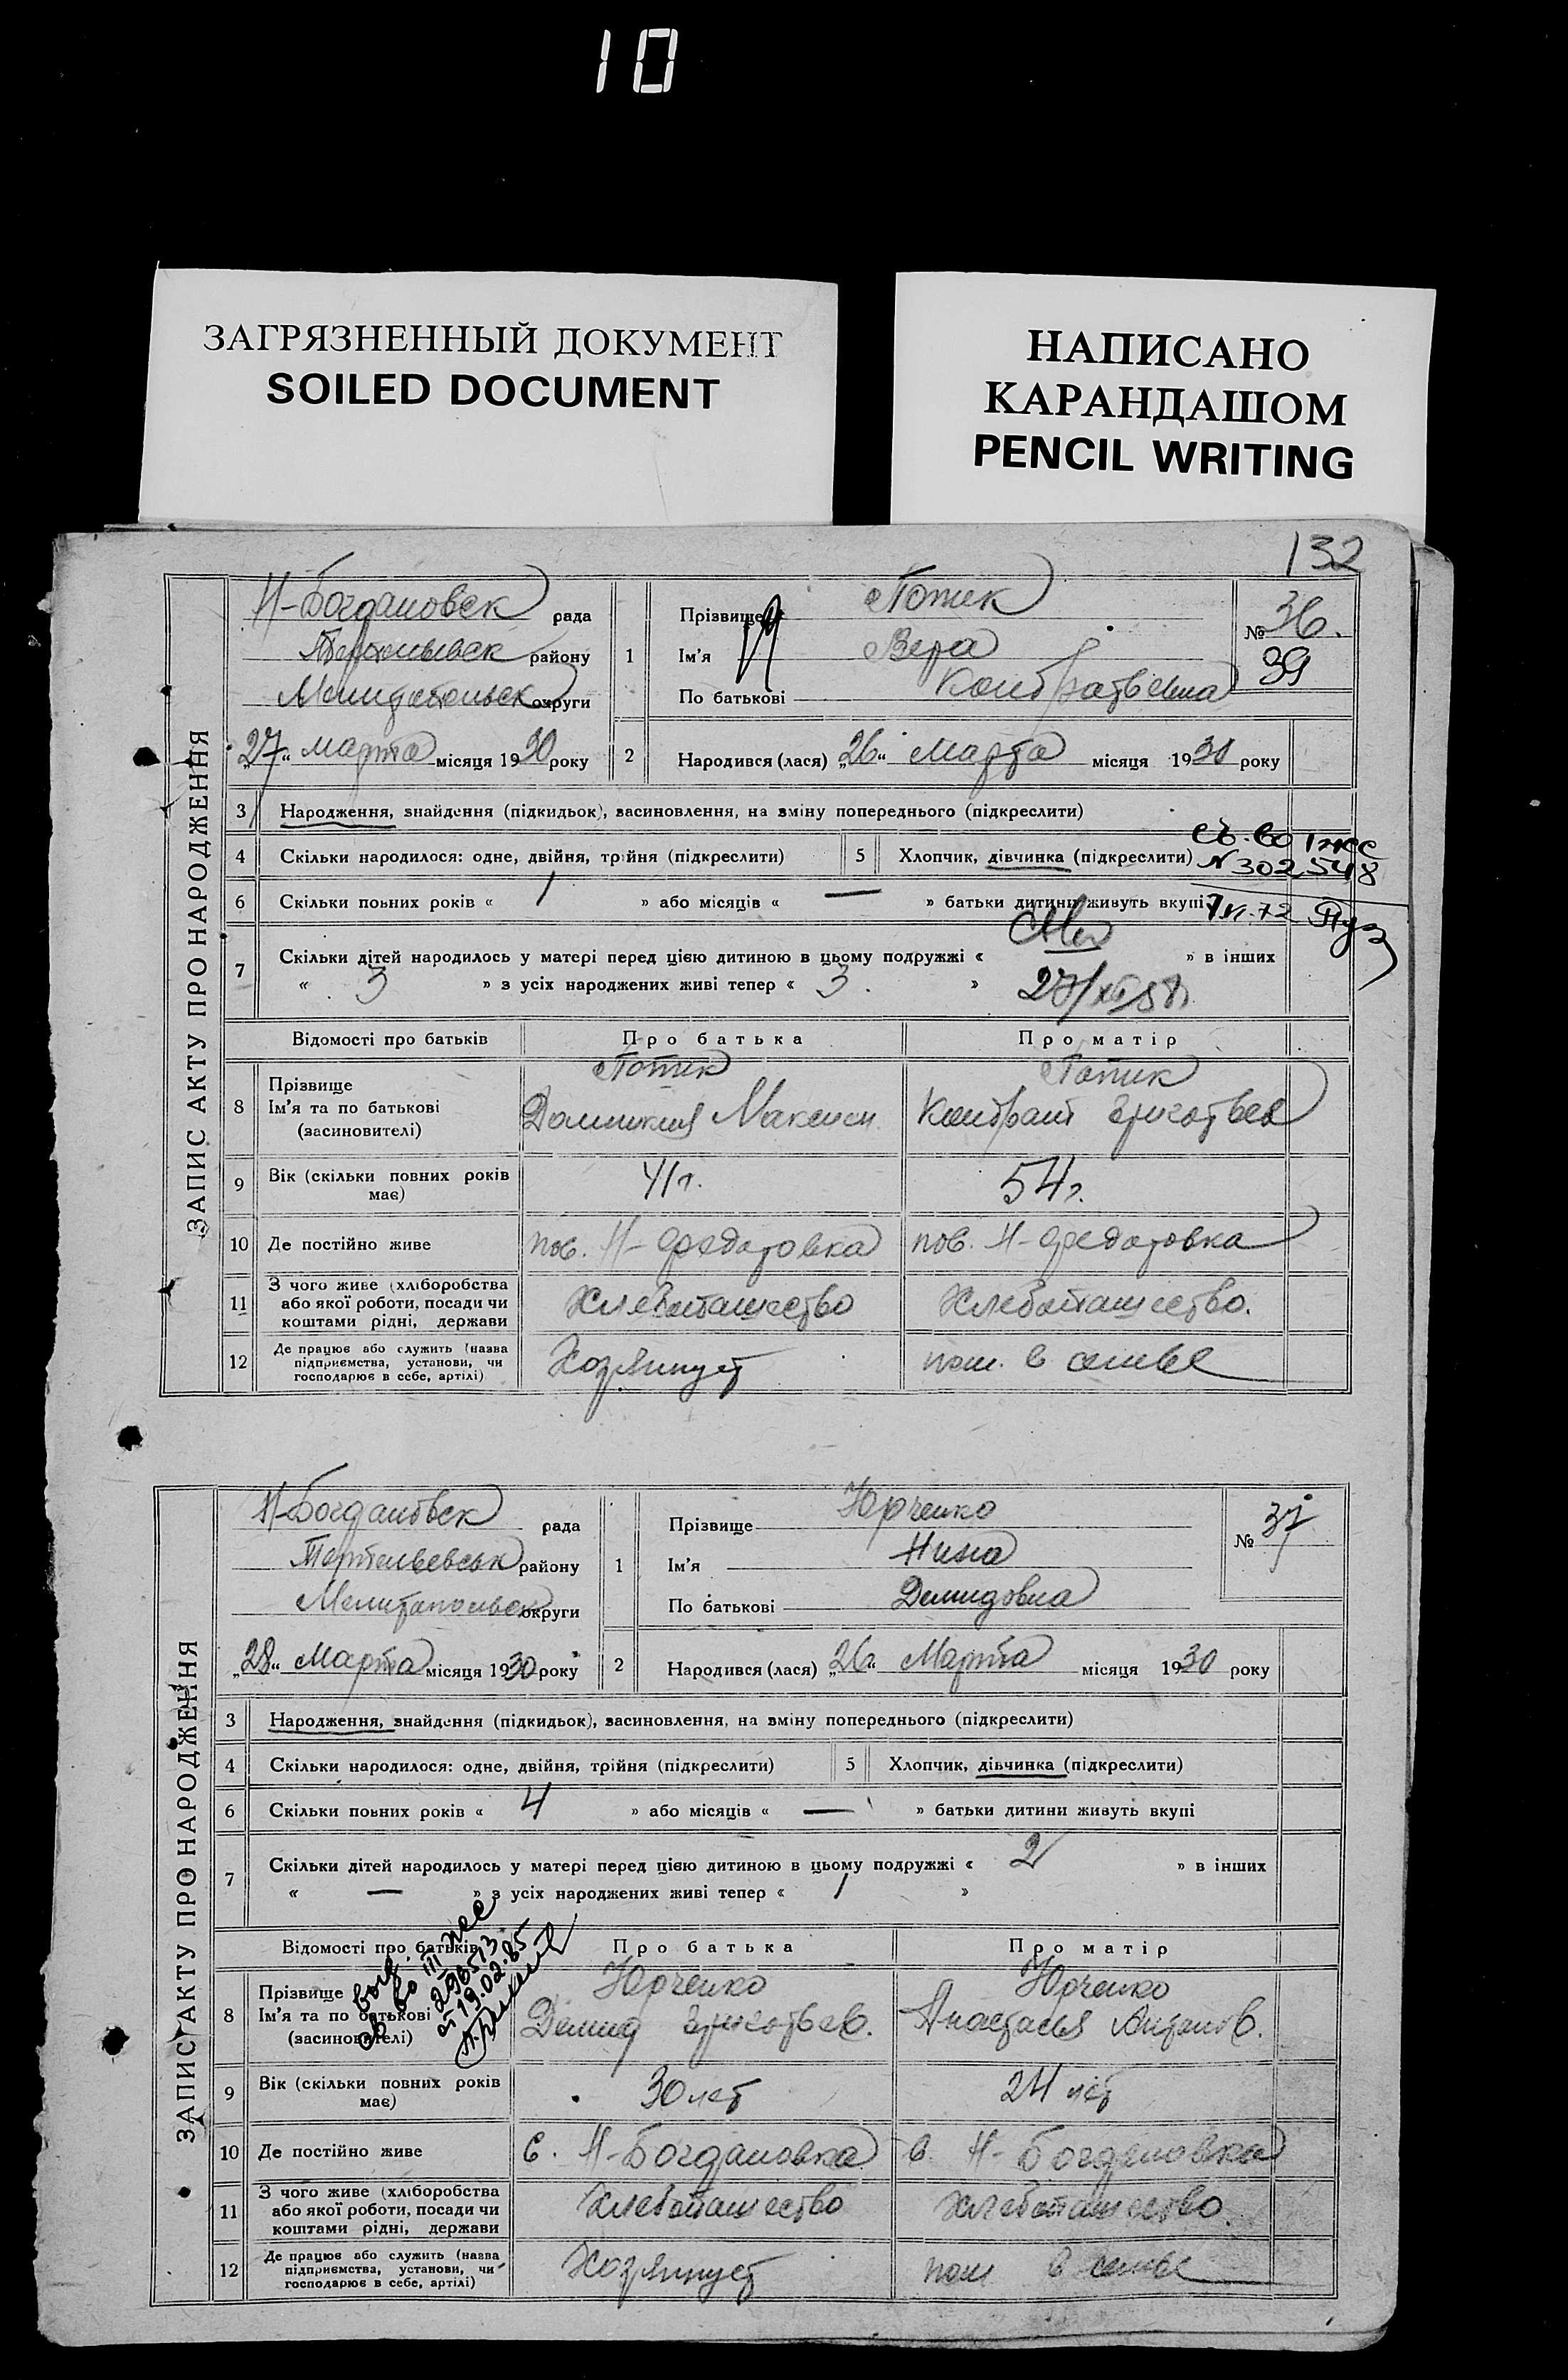 10
ЗАГРЯЗНЕННЫЙ ДОКУМЕНТ
SOILED DOCUMENT
НАПИСАНО
КАРАНДАШОМ
PENCIL WRITING
132
ЗАПИС АКТУ ПРО НАРОДЖЕННЯ
Н-Богдановск рада
району
Мелитопольск округи
„27“ марта місяця 1930 року
1 Прізвище Потик
Ім'я Вера
По батькові Кондратьевна
№ 36.
39
2 Народився (лася) „26“ Марта місяця 1930 року
3 Народження, знайдення (підкидьок), васиновлення, на зміну попереднього (підкреслити)
4 Скільки народилося: одне, двійня, трійня (підкреслити) 5 Хлопчик, дівчинка (підкреслити)
св-во
N 302548
72
6 Скільки повних років « 1 » або місяців « — » батьки дитини живуть вкупі
7 Скільки дітей народилось у матері перед цією дитиною в цьому подружжі « » в інших
« 3 » з усіх народжених живі тепер « 3. »
27/XII 58
Відомості про батьків Про батька Про матір
8 Прізвище Потик Потик
Ім'я та по батькові Максим Кондрат Григорьев
(засиновителі)
9 Вік (скільки повних років має) 41 г. 54 г.
10 Де постійно живе пос. Н-Федоровка пос. Н-Федоровка
11 З чого живе (хліборобства або якої роботи, посади чи коштами рідні, держави Хлебопашество Хлебопашество.
12 Де працює або служить (назва підприємства, установи, чи господарює в себе, артілі) Хозяинует пом. в семье
ЗАПИС АКТУ ПРО НАРОДЖЕННЯ
Н-Богдановск рада
району
Мелитопольск округи
„28“ Марта місяця 1930 року
1 Прізвище Юрченко
Ім'я Нина
По батькові Демидовна
№ 37
2 Народився (лася) „26“ Марта місяця 1930 року
3 Народження, знайдення (підкидьок), засиновлення, на зміну попереднього (підкреслити)
4 Скільки народилося: одне, двійня, трійня (підкреслити) 5 Хлопчик, дівчинка (підкреслити)
6 Скільки повних років « 4 » або місяців « — » батьки дитини живуть вкупі
7 Скільки дітей народилось у матері перед цією дитиною в цьому подружжі « 2 » в інших
« — » з усіх народжених живі тепер « 1 »
Відомості про батьків Про батька Про матір
выд.
св-во III
от 19.02.85
8 Прізвище Юрченко Юрченко
Ім'я та по батькові Демид Григорьев. Анастасия Антонов.
(засиновителі)
9 Вік (скільки повних років має) 30 лет 24 лет
10 Де постійно живе с. Н-Богдановка с. Н-Богдановка
11 З чого живе (хліборобства або якої роботи, посади чи коштами рідні, держави Хлебопашество Хлебопашество.
12 Де працює або служить (назва підприємства, установи, чи господарює в себе, артілі) Хозяинует пом в семье